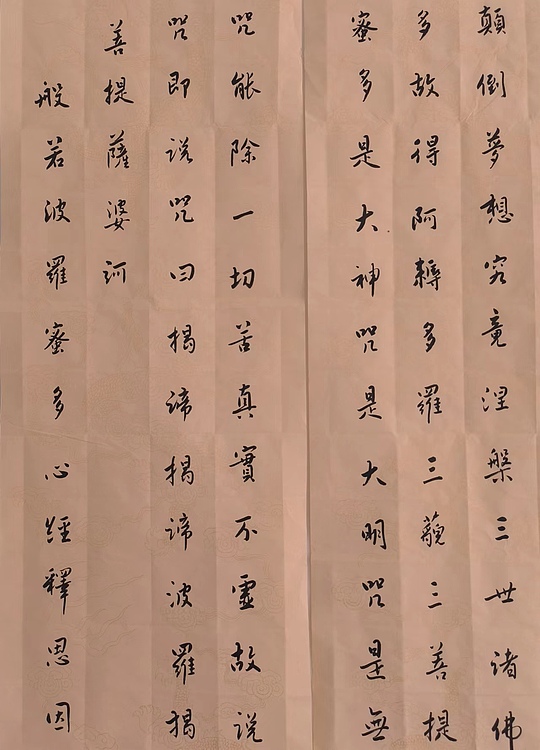 顛倒夢想究竟涅槃三世諸佛
多故得阿耨多羅三藐三菩提
蜜多是大神咒是大明咒是無
咒能除一切苦真實不虛故說
咒即說咒曰揭諦揭諦波羅揭
菩提薩婆訶
般若波羅蜜多心經釋恩因